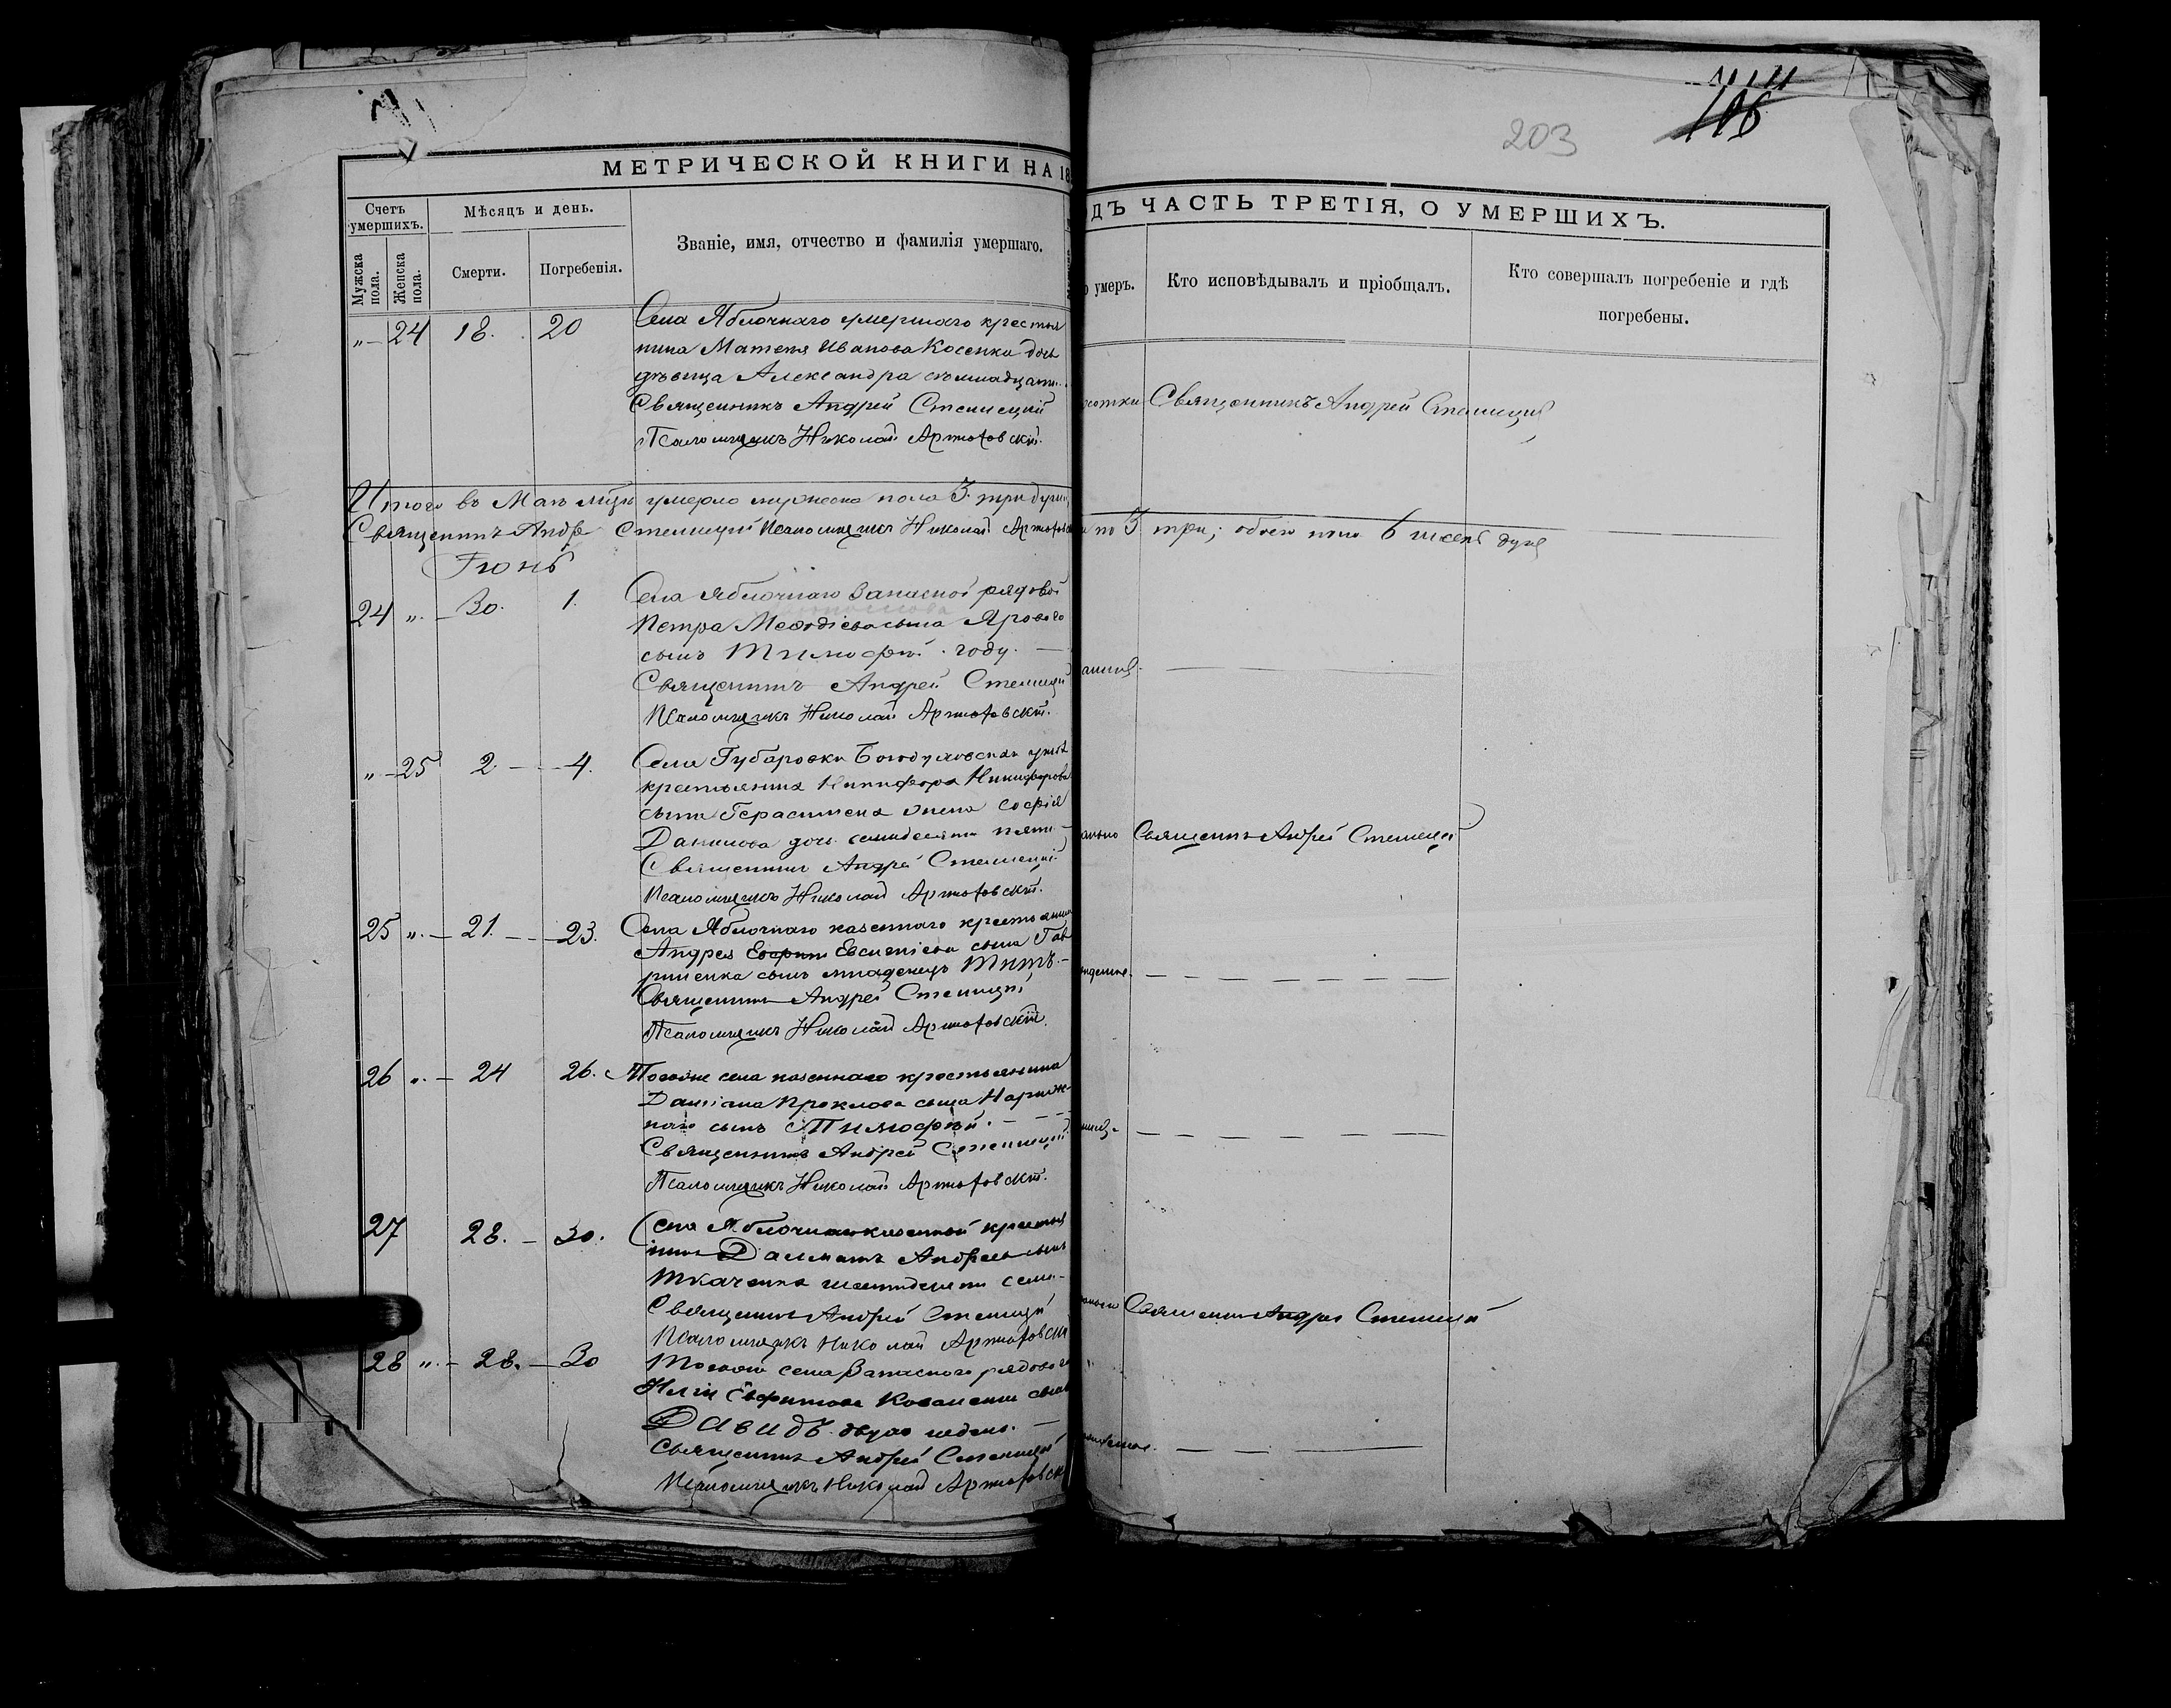 203
106
МЕТРИЧЕСКОЙ КНИГИ НА 18
ДЪ ЧАСТЬ ТРЕТІЯ, О УМЕРШИХЪ.
Счетъ умершихъ.
Мужска пола.
Женска пола.
Мѣсяцъ и день.
Смерти.
Погребенія.
Званіе, имя, отчество и фамилія умершаго.
о умеръ.
Кто исповѣдывалъ и пріобщалъ.
Кто совершалъ погребеніе и гдѣ погребены.
„ 24 18. 20
Села Яблочнаго умершаго крестья
нина Матвѣя Иванова Косенка дочь
дѣвица Александра
Священникъ Андрей Стеллецкій
Псаломщикъ Николай Артюховскій.
сотки Священникъ Андрей Стеллецкій
Итого въ Маѣ мцѣ умерло мужеска пола 3. три души,
по 3 три; обоего пола 6 шесть душъ
Священникъ Андр Стеллецкій Псаломщикъ Николай Артюховск
Іюнь
24 „ 30. 1.
Села Яблочнаго Запасной рядовой
Петра Меѳодіева сына Ярового
сынъ Тимофей. году. —
Священникъ Андрей Стеллецкій
Псаломщикъ Николай Артюховскій.
„ 25 2 4.
Села Губаровки Богодуховскаго уѣзда
крестьянина Никифора Никифорова
сына Герасимена жена Софія
Данилова дочь семидесяти пяти
Священникъ Андрей Стеллецкій
Псаломщикъ Николай Артюховскій.
Священникъ Андрей Стеллецкій
25 „ 21. 23.
Села Яблочнаго казеннаго крестьянина
Андрея Евсигніева сына Гав
риленка сынъ младенецъ Титъ. —
Священникъ Андрей Стеллецкій
Псаломщикъ Николай Артюховскій.
26 „ 24 26.
Тогоже села казеннаго крестьянина
Даміана Проклова сына Нариж
наго сынъ Тимофѣй. —
Священникъ Андрей Стеллецкій
Псаломщикъ Николай Артюховскій.
27 28. 30.
Села Яблочнаго казенный крестья
нинъ Далматъ Андреевъ сынъ
Ткаченка шестидесяти семи
Священникъ Андрей Стеллецкій
Псаломщикъ Николай Артюховскі
Священникъ Андрей Стеллецкій
28 „ 28. 30
Тогоже села Запаснаго рядового
Иліи Евфимова Коваленка сынъ
Давидъ двухъ недель. —
Священникъ Андрей Стеллецкій
Псаломщикъ Николай Артюховск